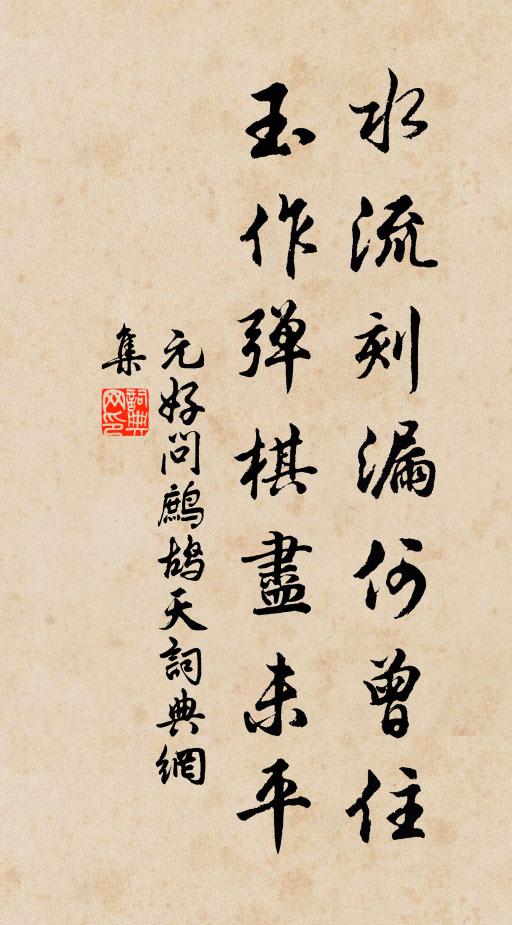 水流刻漏何曾住
玉作弹棋盡未平
元好问鷓鴣天詞典網
集
詞典
网印